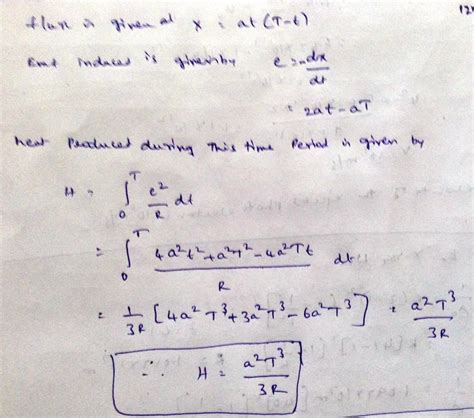 flux is given at x = at (T-t)
Emf induced is given by e = -dx/dt
= 2at - aT
heat Produced during this time Period is given by
H = ∫₀ᵀ e²/R dt
= ∫₀ᵀ (4a²t² + a²T² - 4a²Tt)/R dt
= 1/3R [4a²T³ + 3a²T³ - 6a²T³] = a²T³/3R
∴ H = a²T³/3R